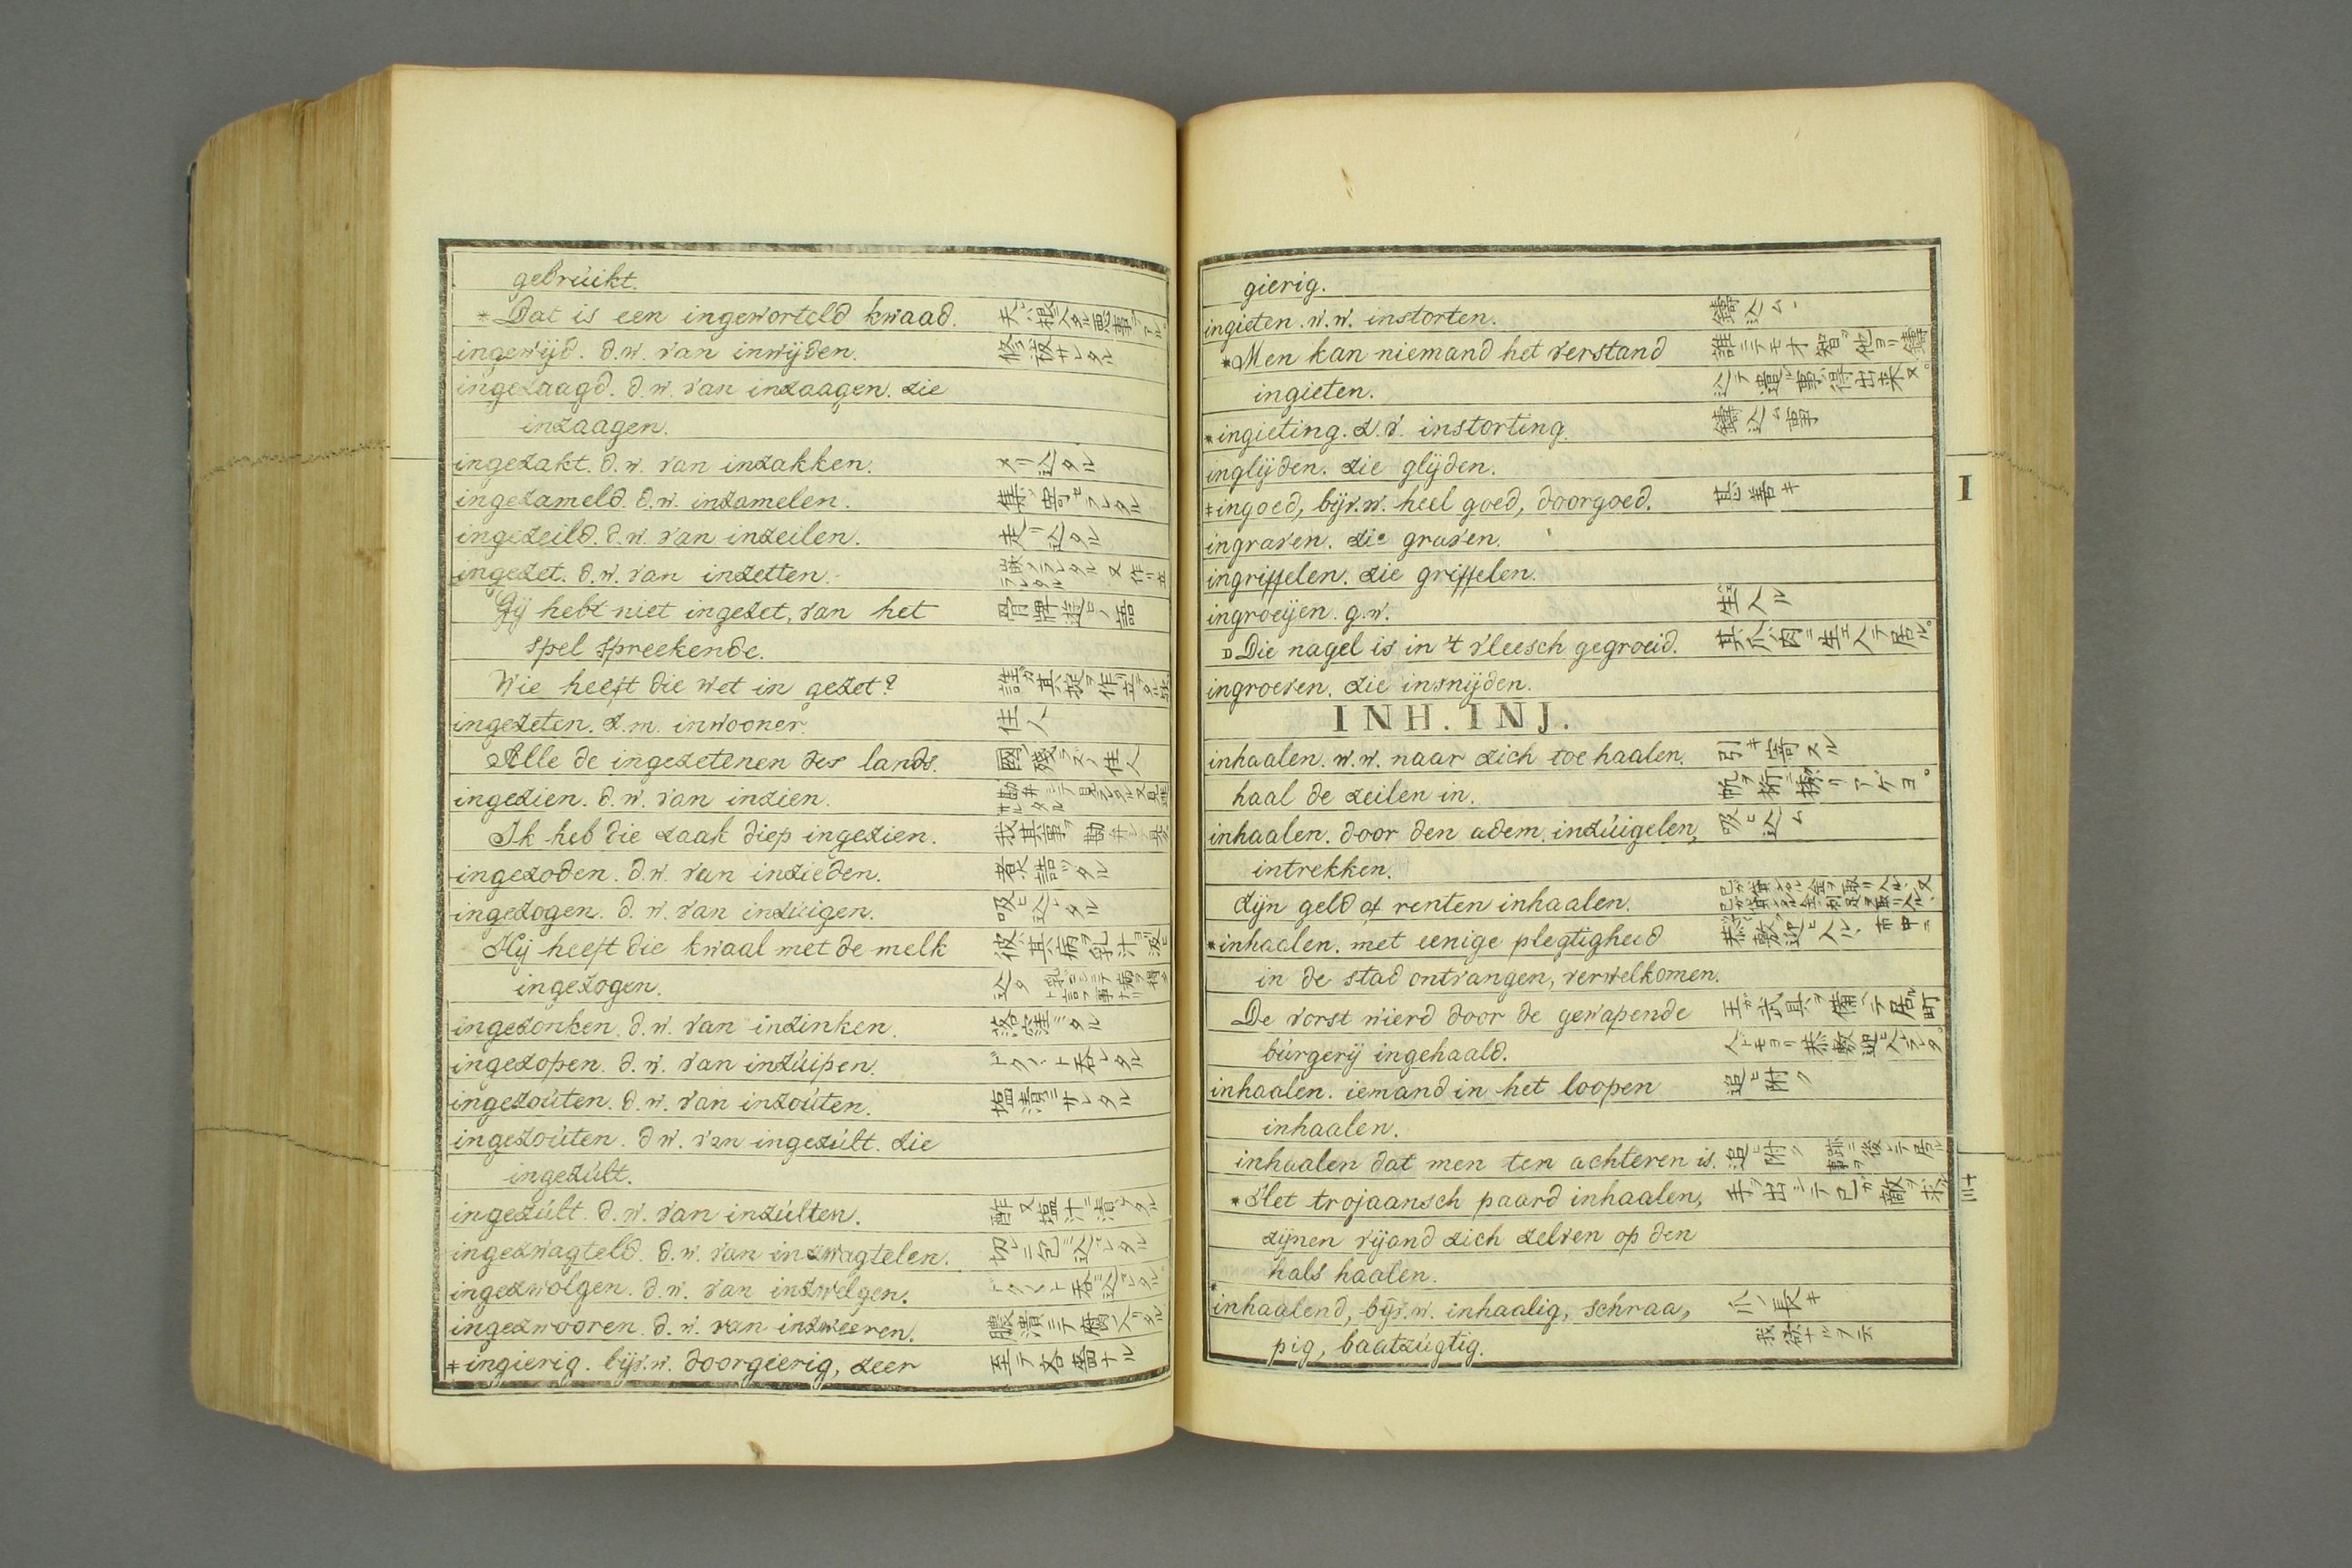 gebrúikt.
* Dat is een ingeworteld kwaad. 夫ハ根入タル悪事テアル。
ingewijd. d.w. van inwijden. 修祓サレタル
ingezaagd. d.w. van inzaagen. zie
inzaagen.
ingezakt. d.w. van inzakken. メリ込タル
ingezameld. d.w. inzamelen. 集メ寄セラレタル
ingezeild. d.w. van inzeilen. 走リ込タル
ingezet. d.w. van inzetten. 嵌メラレタル又作リ立ラレタル
Gij hebt niet ingezet, van het 骨牌遊ヒノ語
spel spreekende.
Wie heeft die wet in gezet? 誰カ其掟ヲ作リ立テタル
ingezeten. z.m. inwooner. 住人
Alle de ingezetenen des lands. 國ノ残ラズノ住人
ingezien. d.w. van inzien.
Ik heb die zaak diep ingezien. 我其事ヲ勘弁シタ
ingezoden. d.w. van inzieden. 煮詰ツタル
ingezogen. d.w. van inzúigen. 吸ヒ込レタル
Hij heeft die kwaal met de melk 彼ハ其病ヲ乳汁ヨリ吸ヒ
ingezogen. 込タ
ingezonken. d.w. van inzinken. 落窪ミタル
ingezopen. d.w. van inzúipen. ドクヽト呑レタル
ingezoúten. d.w. van inzoúten. 塩漬ニサレタル
ingezoúten. d.w. van ingezúlt. zie
ingezúlt.
ingezúlt. d.w. van inzúlten. 酢又塩汁ニ漬ケタル
ingezwagteld. d.w. van inzwagtelen. 切レニ包ミ込レタル
ingezwolgen. d.w. van inzwelgen. ドクヽト呑ミ込レタル。
ingezwooren. d.w. van inzweeren. 膿潰ニテ腐入リタル
‡ ingierig. bijv.w. doorgierig, zeer 至テ吝嗇ナル
gierig.
ingieten. w.w. instorten. 鑄込ム
* Men kan niemand het verstand 誰ニテモ才智ヲ他ヨリ鑄
ingieten. 込テ遣ル事ハ得出来ヌ。
* ingieting. z.v. instorting. 鑄込ム事
inglijden. zie glijden.
‡ ingoed, bijv.w. heel goed, doorgoed. 甚善キ
ingraven. zie graven.
ingriffelen. zie griffelen.
ingroeijen. g.w. 生ヘ入ル
D Die nagel is in 't vleesch gegroeid. 其爪ハ肉ニ生エ入テ居ル。
ingroeven. zie insnijden.
INH. INJ.
inhaalen. w.w. naar zich toe haalen. 引キ寄スル
haal de zeilen in. 帆ヲ桁ニ捲リアゲヨ。
inhaalen. door den adem. inzúigelen, 吸ヒ込ム
intrekken.
Zijn geld of renten inhaalen.
* inhaalen. met eenige plegtigheid 恭敷迎ヒ入ル、市中ニ
in de stad ontvangen, verwelkomen.
De vorst wierd door de gewapende 王カ武具ヲ備ヘテ居ル町
búrgerij ingehaald. 人トモヨリ恭敷迎ヒ入ラレタ。
inhaalen. iemand in het loopen 追ヒ附ク
inhaalen.
inhaalen dat men ten achteren is. 追ヒ附ク 跡ニ後レテ居ル事ヲ
* Het trojaansch paard inhaalen, 手ヲ出シテ己カ敵ヲ求ル
zijnen vijand zich zelven op den
hals haalen.
* inhaalend, bijv.w. inhaalig, schraa, 爪ノ長キ
pig, baatzúgtig. 我欲ナルヲ云
I
十三